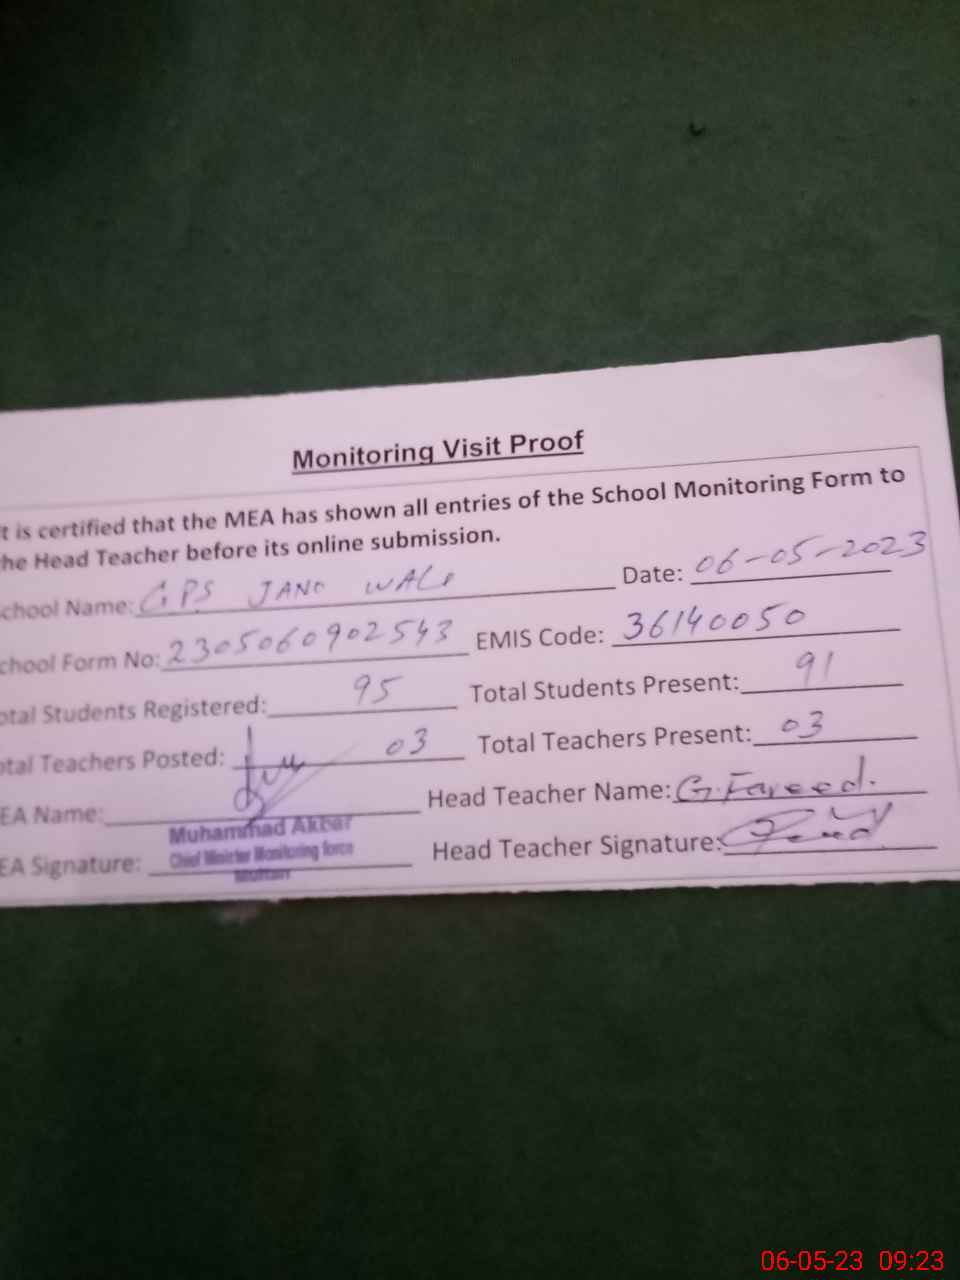 Monitoring Visit Proof
t is certified that the MEA has shown all entries of the School Monitoring Form to
he Head Teacher before its online submission.
chool Name: GPS JANO WALA Date: 06-05-2023
chool Form No: 2305060902543 EMIS Code: 36140050
otal Students Registered: 95 Total Students Present: 91
otal Teachers Posted: 03 Total Teachers Present: 03
EA Name: Head Teacher Name: G. Fareed.
Muhammad Akbar
EA Signature: Chief Minister Monitoring force Head Teacher Signature:
Multan
06-05-23 09:23